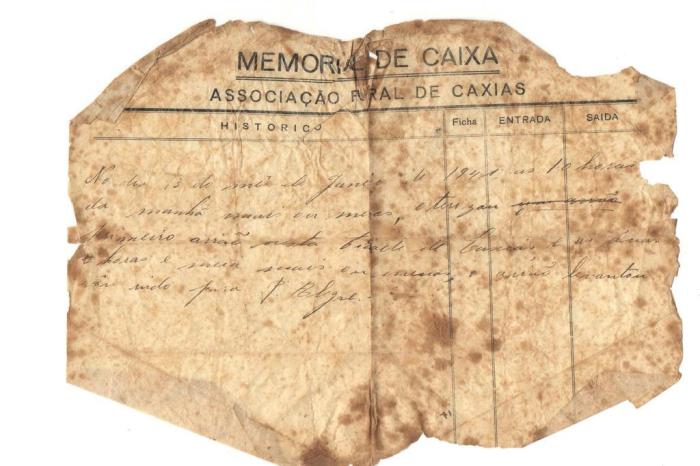 MEMORIAL DE CAIXA
ASSOCIAÇÃO RURAL DE CAXIAS
HISTORICO Ficha ENTRADA SAÍDA
No dia 13 do mês de Junho de 1941, as 10 horas
da manhã mais ou menos, aterrizou
primeiro avião nesta cidade de Caxias e as duas
horas e meia mais ou menos, o avião levantou
vôo indo para P. Alegre.